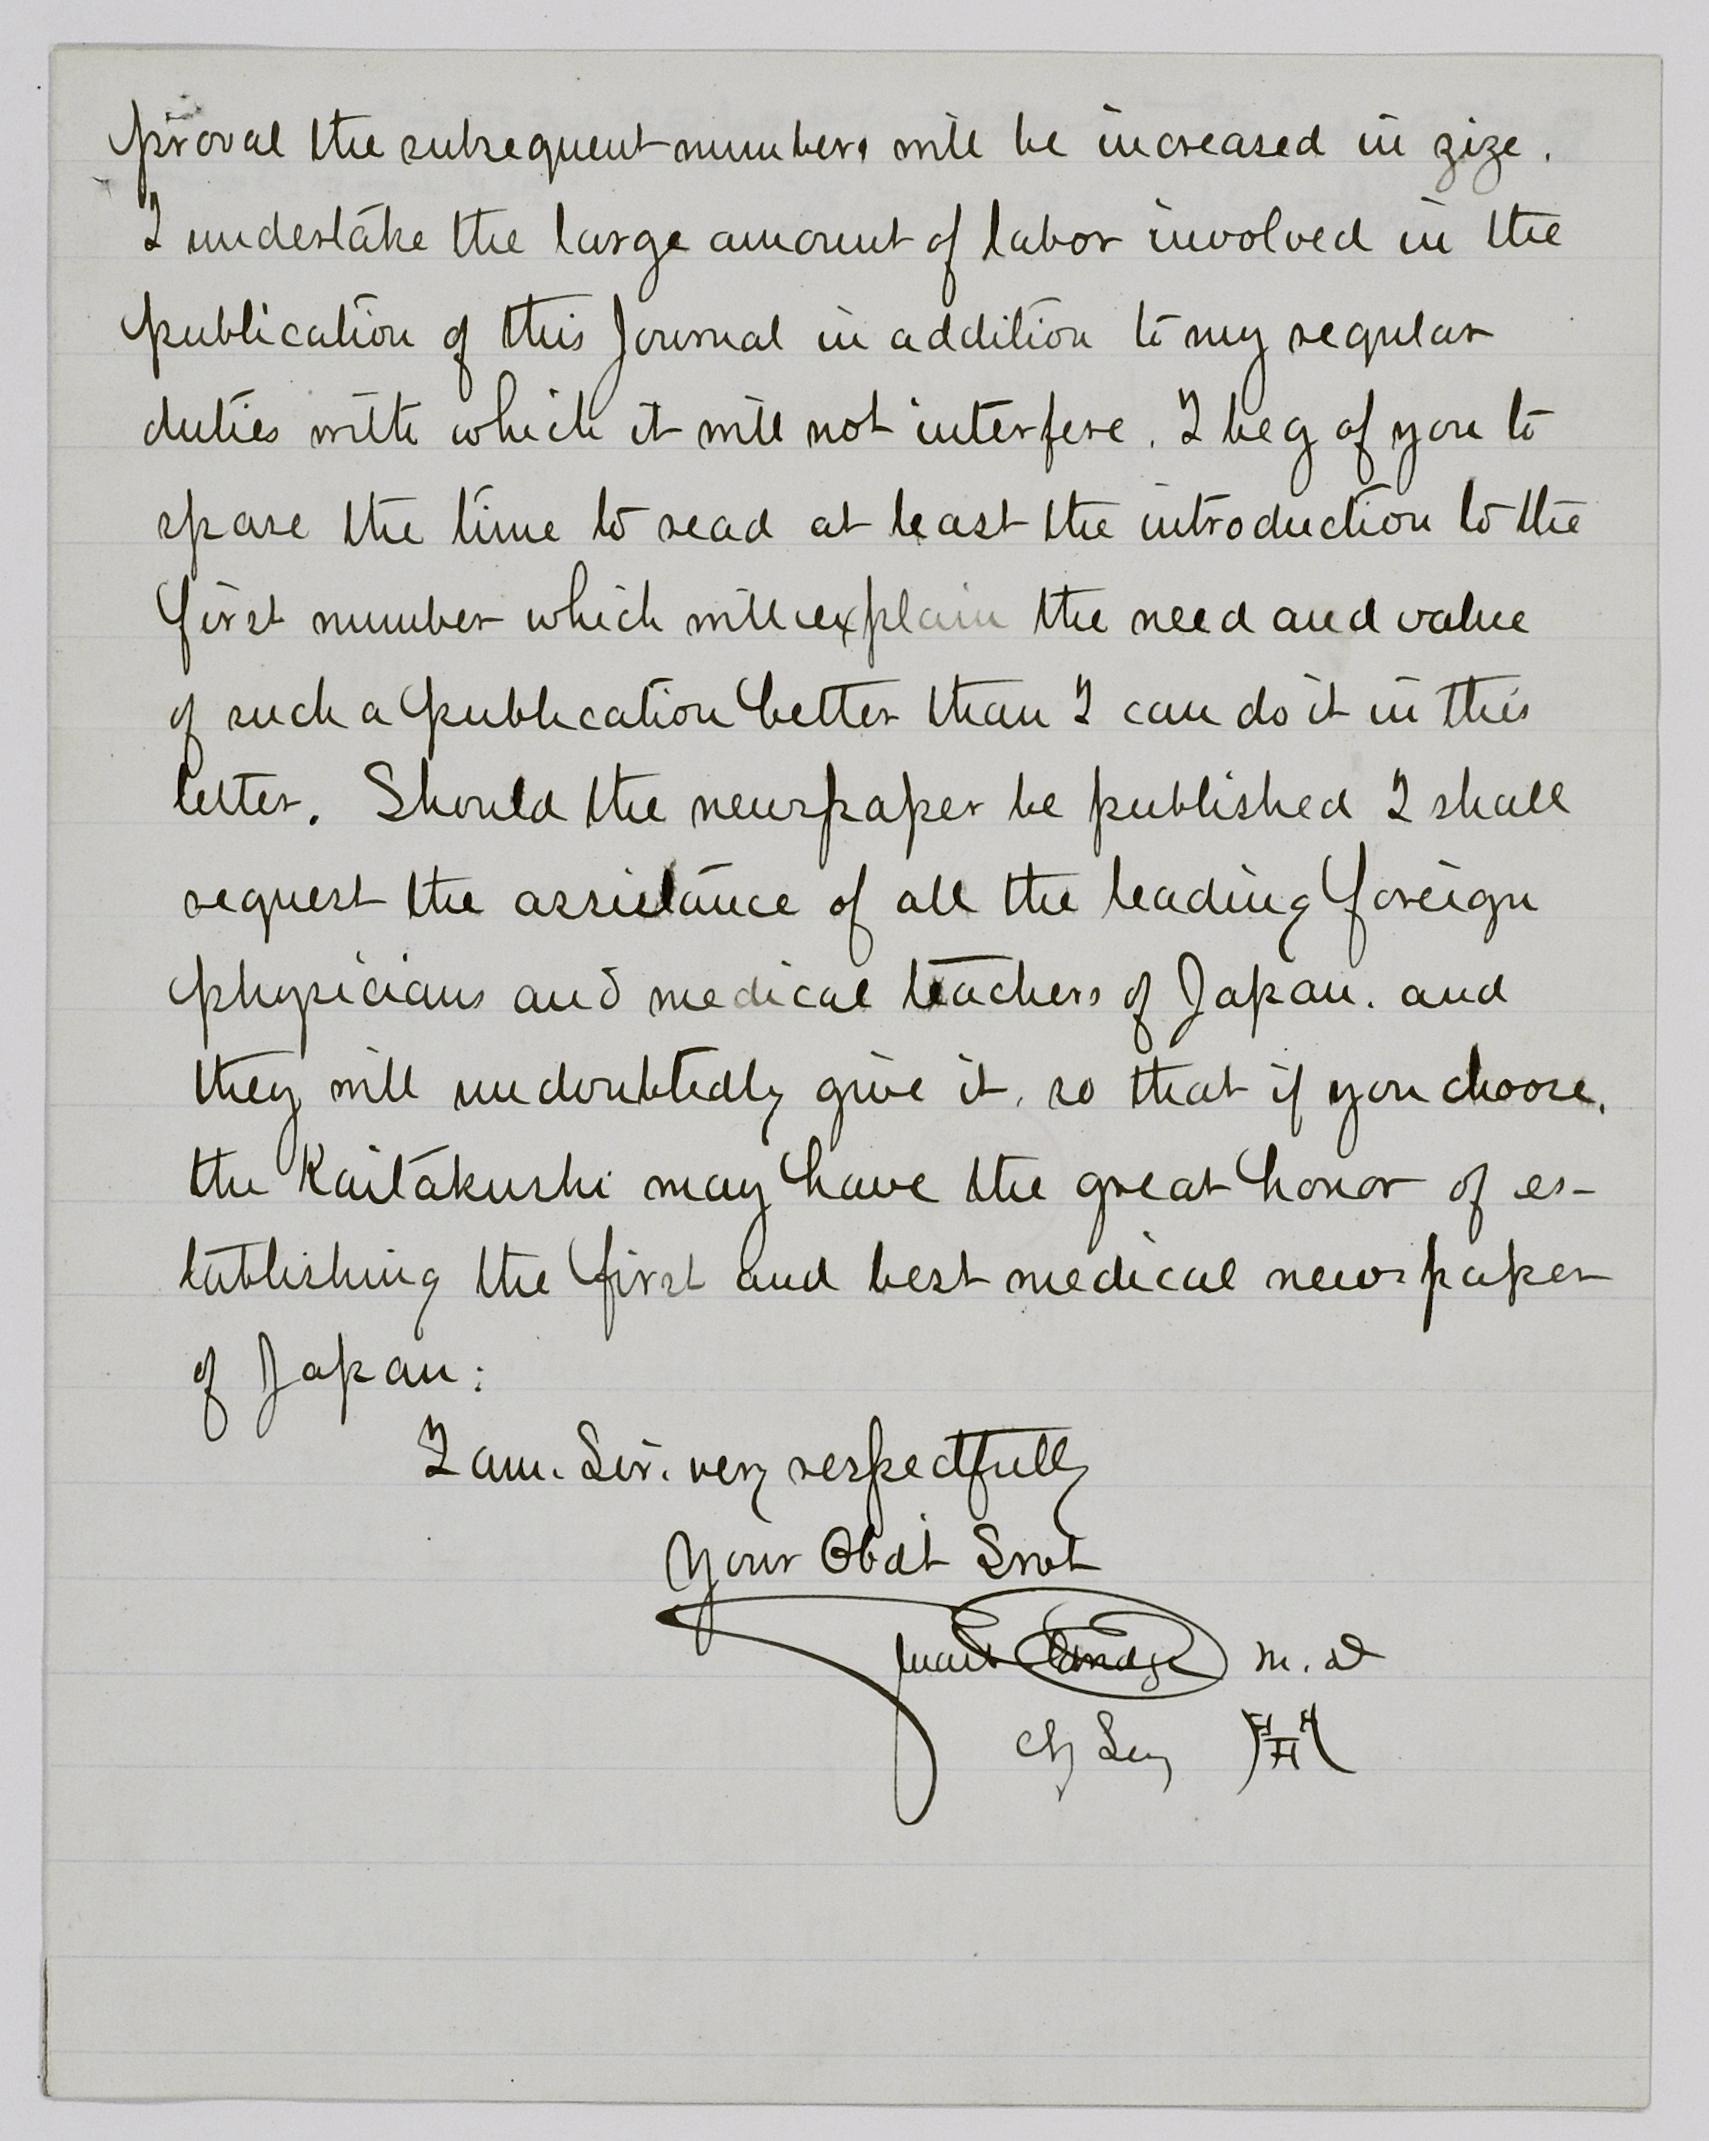 proval the subsequent numbers will be increased in size.
I undertake the large amount of labor involved in the
publication of this Journal in addition to my regular
duties with which it will not interfere. I beg of you to
spare the time to read at least the introduction to the
first number which will explain the need and value
of such a publication better than I can do it in this
letter. Should the newspaper be published I shall
request the assistance of all the leading foreign
physicians and medical teachers of Japan. and
they will undoubtedly give it, so that if you choose,
the Kaitakushi may have the great honor of es-
tablishing the first and best medical newspaper
of Japan:
I am. Sir. very respectfully
Your Obdt Srvt
Stuart Eldridge M.D